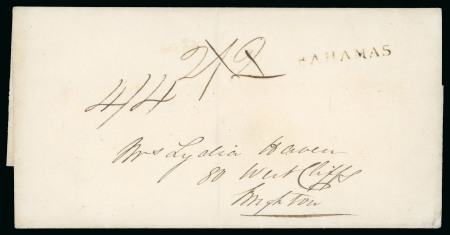 2/2 BAHAMAS
4/4
Mrs Lydia Haven
80 West Cliffs
Brighton